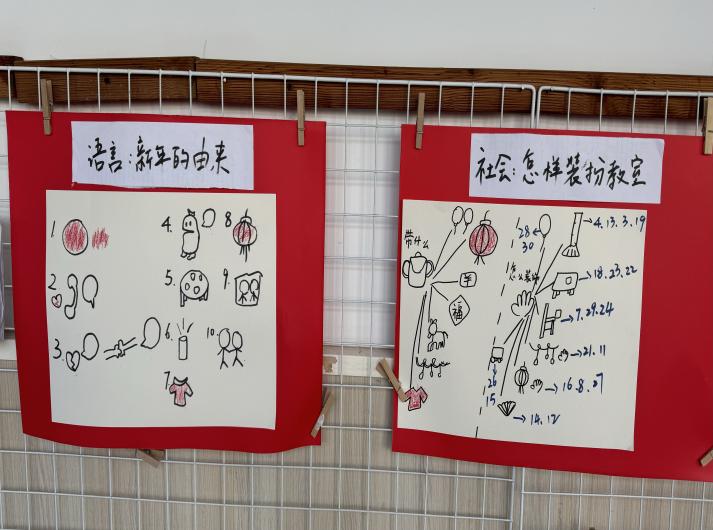 语言:新年的由来
1
2.
3.
4.
5.
6.
7.
8.
9.
10.
社会:怎样装扮教室
带什么
福
怎么装饰
28
30
4.13.3.19
18.23.22
7.29.24
21.11
16.8.27
26
15
14.12